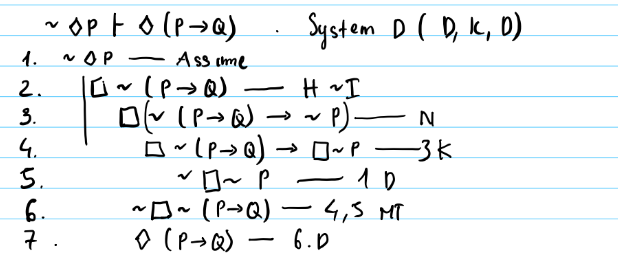 ~ ◇P ⊢ ◇ (P→Q) . System D ( D, K, D)
1. ~ ◇P — Assume
2. □ ~ (P→Q) — H ~I
3. □(~ (P→Q) → ~ P) — N
4. □ ~ (P→Q) → □~ P — 3 K
5. ~ □~ P — 1 D
6. ~□~ (P→Q) — 4,5 MT
7 . ◇ (P→Q) — 6.D